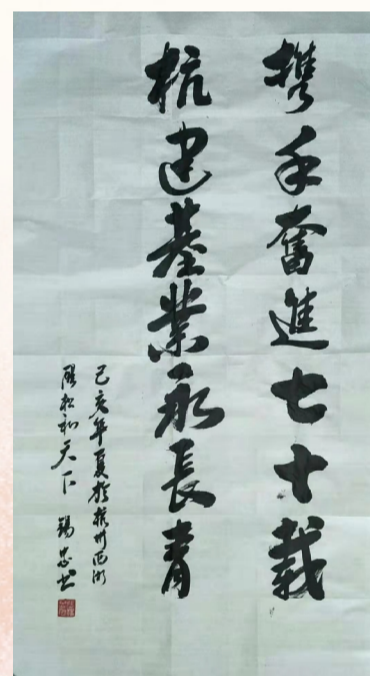 携手奮進七十載
杭建基業永長青
己亥年夏於杭州西湖
陽松和天下 錫忠书